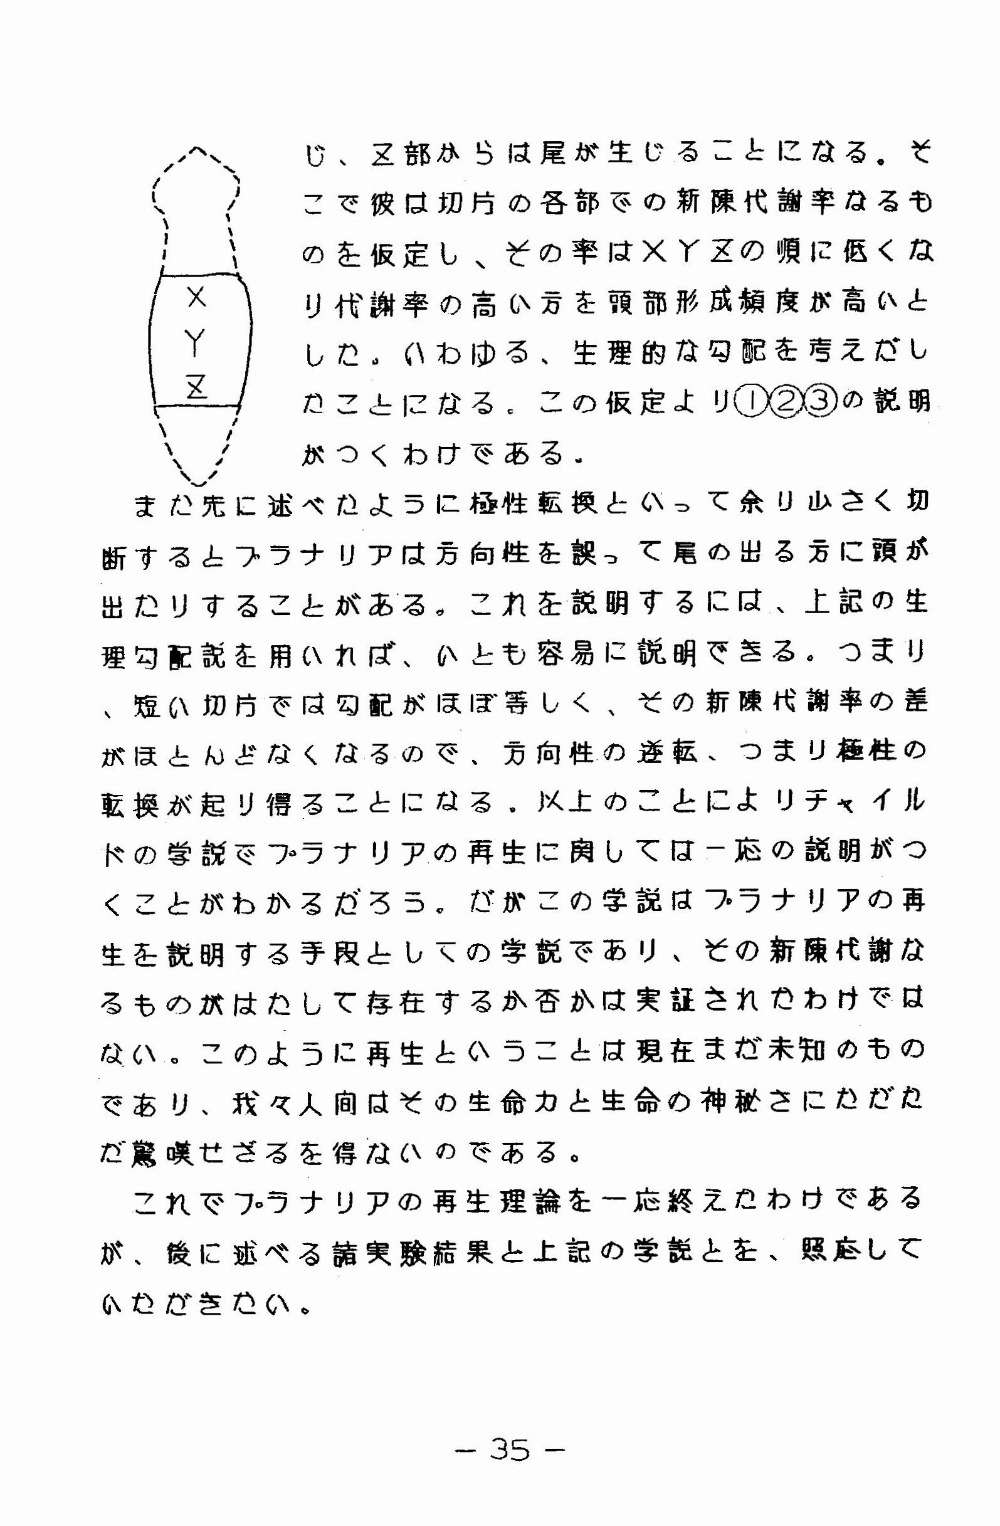 X
Y
Z
じ、Z部からは尾が生じることになる。そ
こで彼は切片の各部での新陳代謝率なるも
のを仮定し、その率はXYZの順に低くな
り代謝率の高い方を頭部形成頻度が高いと
した。いわゆる、生理的な勾配を考えだし
たことになる。この仮定より①②③の説明
がつくわけである。
また先に述べたように極性転換といって余り小さく切
断するとプラナリアは方向性を誤って尾の出る方に頭が
出たりすることがある。これを説明するには、上記の生
理勾配説を用いれば、いとも容易に説明できる。つまり
、短い切片では勾配がほぼ等しく、その新陳代謝率の差
がほとんどなくなるので、方向性の逆転、つまり極性の
転換が起り得ることになる。以上のことによりチャイル
ドの学説でプラナリアの再生に関しては一応の説明がつ
くことがわかるだろう。だがこの学説はプラナリアの再
生を説明する手段としての学説であり、その新陳代謝な
るものがはたして存在するか否かは実証されたわけでは
ない。このように再生ということは現在まだ未知のもの
であり、我々人間はその生命力と生命の神秘さにただた
だ驚嘆せざるを得ないのである。
これでプラナリアの再生理論を一応終えたわけである
が、後に述べる諸実験結果と上記の学説とを、照応して
いただきたい。
— 35 —